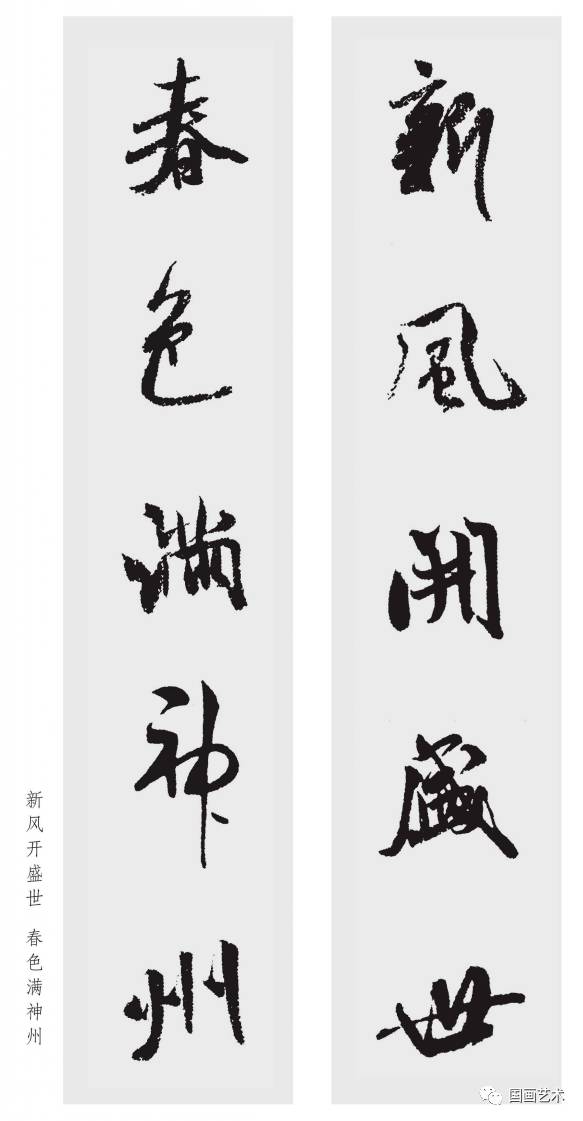 新風開盛世
春色满神州
新风开盛世 春色满神州
国画艺术